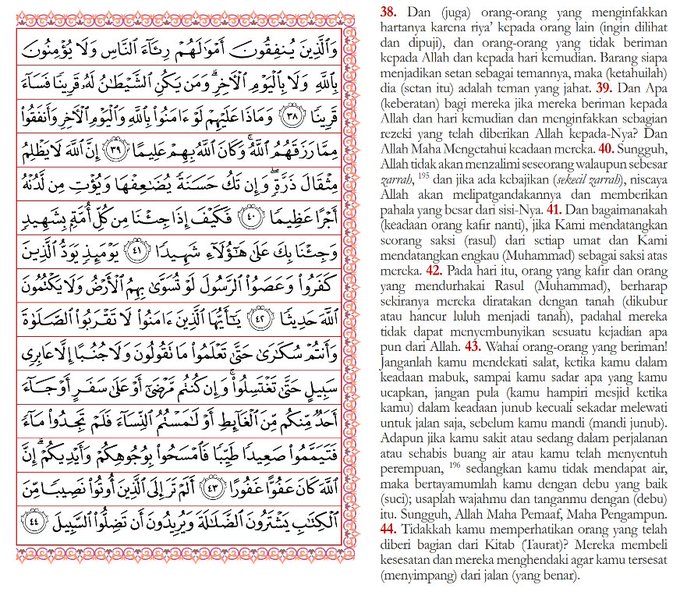 وَٱلَّذِينَ يُنفِقُونَ أَمْوَٰلَهُمْ رِئَآءَ ٱلنَّاسِ وَلَا يُؤْمِنُونَ
بِٱللَّهِ وَلَا بِٱلْيَوْمِ ٱلْءَاخِرِ ۗ وَمَن يَكُنِ ٱلشَّيْطَٰنُ لَهُۥ قَرِينًا فَسَآءَ
قَرِينًا ٣٨ وَمَاذَا عَلَيْهِمْ لَوْ ءَامَنُوا۟ بِٱللَّهِ وَٱلْيَوْمِ ٱلْءَاخِرِ وَأَنفَقُوا۟
مِمَّا رَزَقَهُمُ ٱللَّهُ ۚ وَكَانَ ٱللَّهُ بِهِمْ عَلِيمًا ٣٩ إِنَّ ٱللَّهَ لَا يَظْلِمُ
مِثْقَالَ ذَرَّةٍ ۖ وَإِن تَكُ حَسَنَةً يُضَٰعِفْهَا وَيُؤْتِ مِن لَّدُنْهُ
أَجْرًا عَظِيمًا ٤٠ فَكَيْفَ إِذَا جِئْنَا مِن كُلِّ أُمَّةٍۭ بِشَهِيدٍ
وَجِئْنَا بِكَ عَلَىٰ هَٰٓؤُلَآءِ شَهِيدًا ٤١ يَوْمَئِذٍ يَوَدُّ ٱلَّذِينَ
كَفَرُوا۟ وَعَصَوُا۟ ٱلرَّسُولَ لَوْ تُسَوَّىٰ بِهِمُ ٱلْأَرْضُ وَلَا يَكْتُمُونَ
ٱللَّهَ حَدِيثًا ٤٢ يَٰٓأَيُّهَا ٱلَّذِينَ ءَامَنُوا۟ لَا تَقْرَبُوا۟ ٱلصَّلَوٰةَ
وَأَنتُمْ سُكَٰرَىٰ حَتَّىٰ تَعْلَمُوا۟ مَا تَقُولُونَ وَلَا جُنُبًا إِلَّا عَابِرِى
سَبِيلٍ حَتَّىٰ تَغْتَسِلُوا۟ ۚ وَإِن كُنتُم مَّرْضَىٰٓ أَوْ عَلَىٰ سَفَرٍ أَوْ جَآءَ
أَحَدٌ مِّنكُم مِّنَ ٱلْغَآئِطِ أَوْ لَٰمَسْتُمُ ٱلنِّسَآءَ فَلَمْ تَجِدُوا۟ مَآءً
فَتَيَمَّمُوا۟ صَعِيدًا طَيِّبًا فَٱمْسَحُوا۟ بِوُجُوهِكُمْ وَأَيْدِيكُمْ ۗ إِنَّ
ٱللَّهَ كَانَ عَفُوًّا غَفُورًا ٤٣ أَلَمْ تَرَ إِلَى ٱلَّذِينَ أُوتُوا۟ نَصِيبًا مِّنَ
ٱلْكِتَٰبِ يَشْتَرُونَ ٱلضَّلَٰلَةَ وَيُرِيدُونَ أَن تَضِلُّوا۟ ٱلسَّبِيلَ ٤٤
38. Dan (juga) orang-orang yang menginfakkan
hartanya karena riya’ kepada orang lain (ingin dilihat
dan dipuji), dan orang-orang yang tidak beriman
kepada Allah dan kepada hari kemudian. Barang siapa
menjadikan setan sebagai temannya, maka (ketahuilah)
dia (setan itu) adalah teman yang jahat. 39. Dan Apa
(keberatan) bagi mereka jika mereka beriman kepada
Allah dan hari kemudian dan menginfakkan sebagian
rezeki yang telah diberikan Allah kepada-Nya? Dan
Allah Maha Mengetahui keadaan mereka. 40. Sungguh,
Allah tidak akan menzalimi seseorang walaupun sebesar
zarrah, 195 dan jika ada kebajikan (sekecil zarrah), niscaya
Allah akan melipatgandakannya dan memberikan
pahala yang besar dari sisi-Nya. 41. Dan bagaimanakah
(keadaan orang kafir nanti), jika Kami mendatangkan
seorang saksi (rasul) dari setiap umat dan Kami
mendatangkan engkau (Muhammad) sebagai saksi atas
mereka. 42. Pada hari itu, orang yang kafir dan orang
yang mendurhakai Rasul (Muhammad), berharap
sekiranya mereka diratakan dengan tanah (dikubur
atau hancur luluh menjadi tanah), padahal mereka
tidak dapat menyembunyikan sesuatu kejadian apa
pun dari Allah. 43. Wahai orang-orang yang beriman!
Janganlah kamu mendekati salat, ketika kamu dalam
keadaan mabuk, sampai kamu sadar apa yang kamu
ucapkan, jangan pula (kamu hampiri mesjid ketika
kamu) dalam keadaan junub kecuali sekadar melewati
untuk jalan saja, sebelum kamu mandi (mandi junub).
Adapun jika kamu sakit atau sedang dalam perjalanan
atau sehabis buang air atau kamu telah menyentuh
perempuan, 196 sedangkan kamu tidak mendapat air,
maka bertayamumlah kamu dengan debu yang baik
(suci); usaplah wajahmu dan tanganmu dengan (debu)
itu. Sungguh, Allah Maha Pemaaf, Maha Pengampun.
44. Tidakkah kamu memperhatikan orang yang telah
diberi bagian dari Kitab (Taurat)? Mereka membeli
kesesatan dan mereka menghendaki agar kamu tersesat
(menyimpang) dari jalan (yang benar).